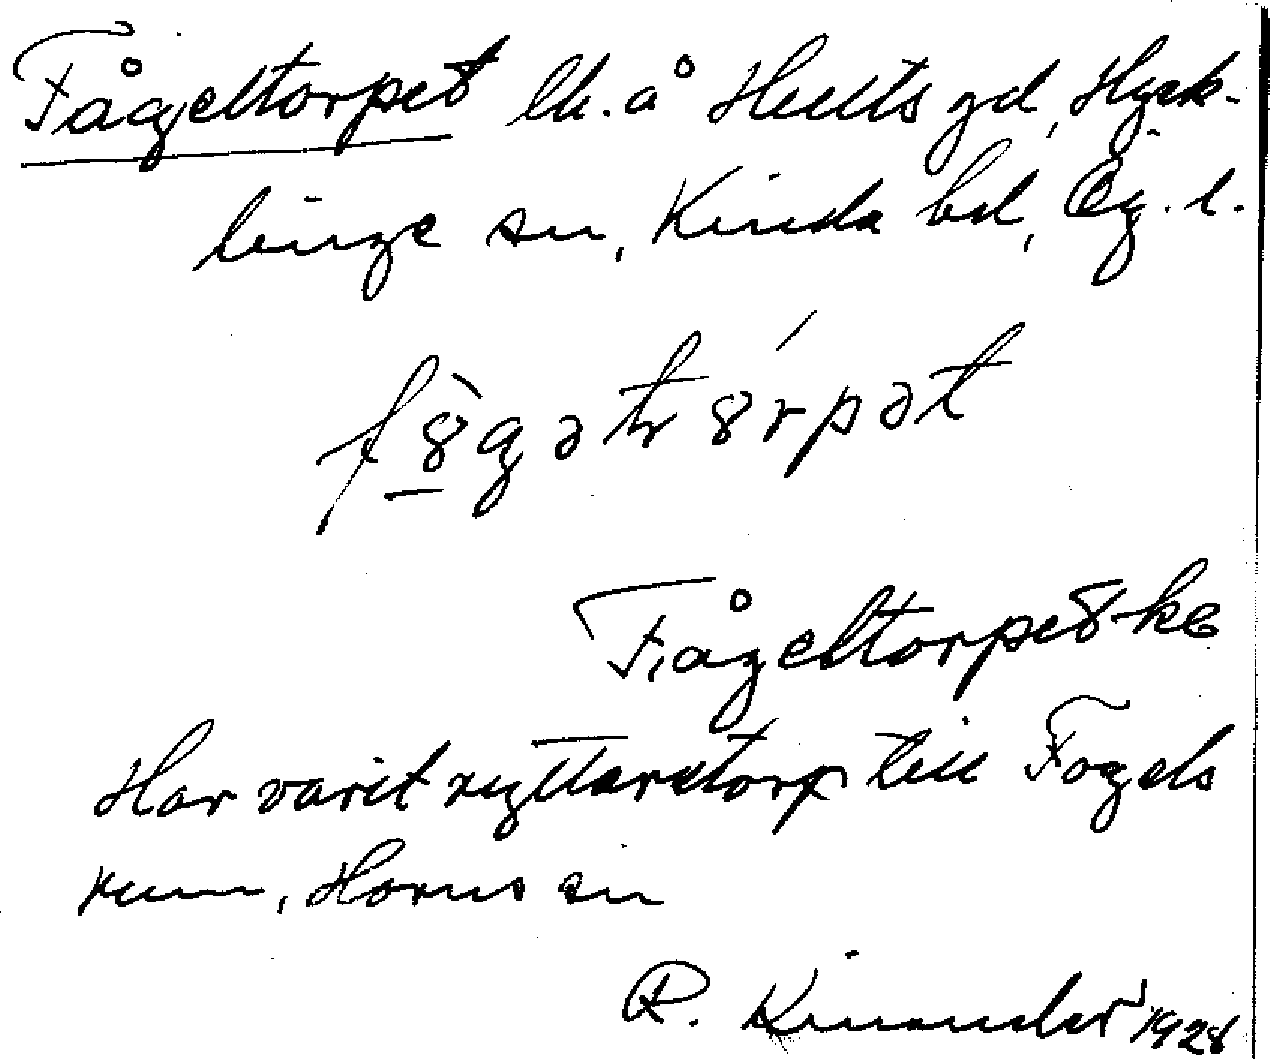 Fågeltorpet lh. å Hults gd, Hyck-
linge sn, Kinda hd, Ög. l.
fågətórpət
Fågeltorpet ke
Har varit ryttaretorp till Fogels
rum, Horns sn
R. Kinander 1928